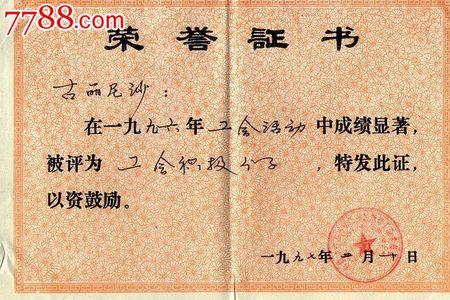 7788.com
荣誉証书
古丽尼沙：
在一九九六年工会活动中成绩显著，
被评为工会积极分子，特发此证，
以资鼓励。
一九九七年 月 十日